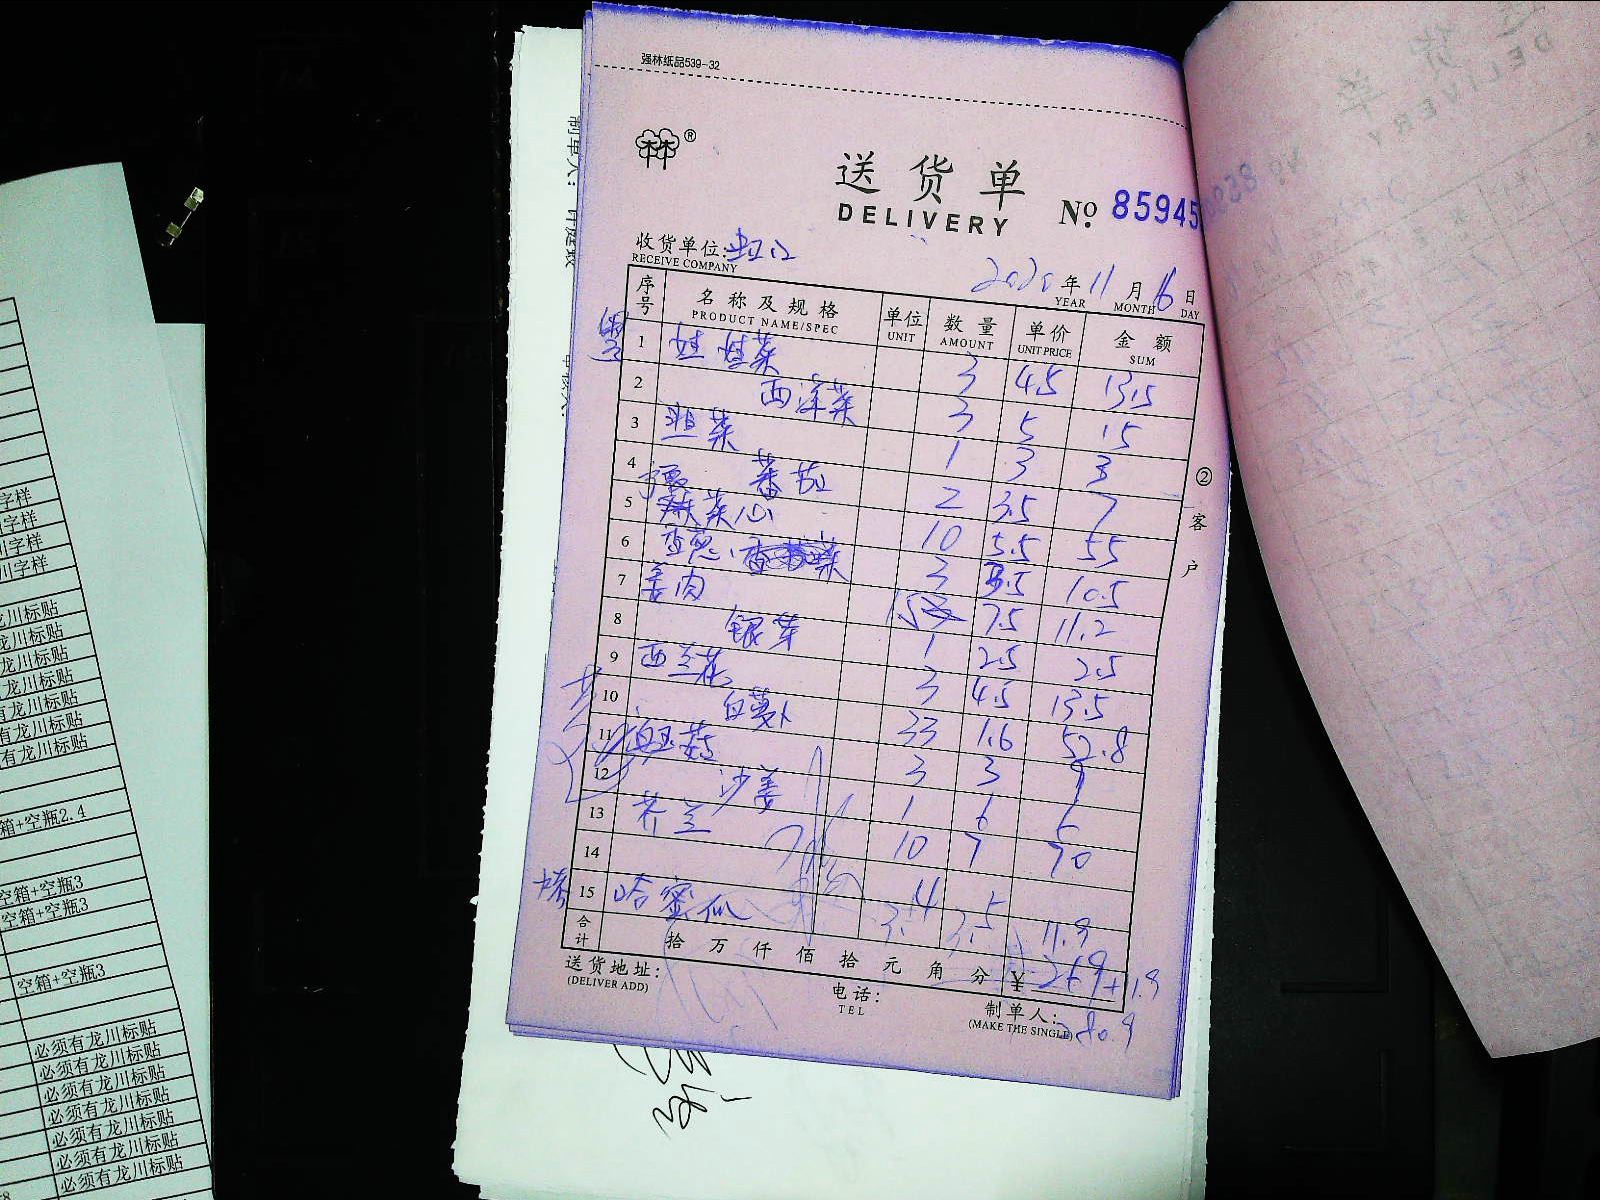 强林纸品539-32
®
送货单
DELIVERY
No 85945
收货单位:虹口
RECEIVE COMPANY
2020年11月16日
YEAR MONTH DAY
序号 名称及规格 单位 数量 单价 金额
PRODUCT NAME/SPEC UNIT AMOUNT UNIT PRICE SUM
1 娃娃菜 3 4.5 13.5
2 西洋菜 3 5 15
3 韭菜 1 3 3
4 番茄 2 3.5 7
5 菜心 10 5.5 55
6 香葱 3 3.5 10.5
7 姜肉 1.5 7.5 11.2
8 银芽 1 2.5 2.5
9 西兰花 3 4.5 13.5
10 白萝卜 33 1.6 52.8
11 白玉菇 3 3 9
12 沙姜 1 6 6
13 芥兰 10 7 70
14
15 哈蜜瓜 3.4 3.5 11.9
合计 拾万仟佰拾元角分 ¥ 269+11.9
280.9
送货地址:
(DELIVER ADD)
电话:
TEL
制单人:
(MAKE THE SINGLE)
②客户
制单人:
字样
字样
川字样
川字样
龙川标贴
龙川标贴
龙川标贴
有龙川标贴
有龙川标贴
有龙川标贴
有龙川标贴
箱+空瓶2.4
空箱+空瓶3
空箱+空瓶3
空箱+空瓶3
必须有龙川标贴
必须有龙川标贴
必须有龙川标贴
必须有龙川标贴
必须有龙川标贴
必须有龙川标贴
必须有龙川标贴